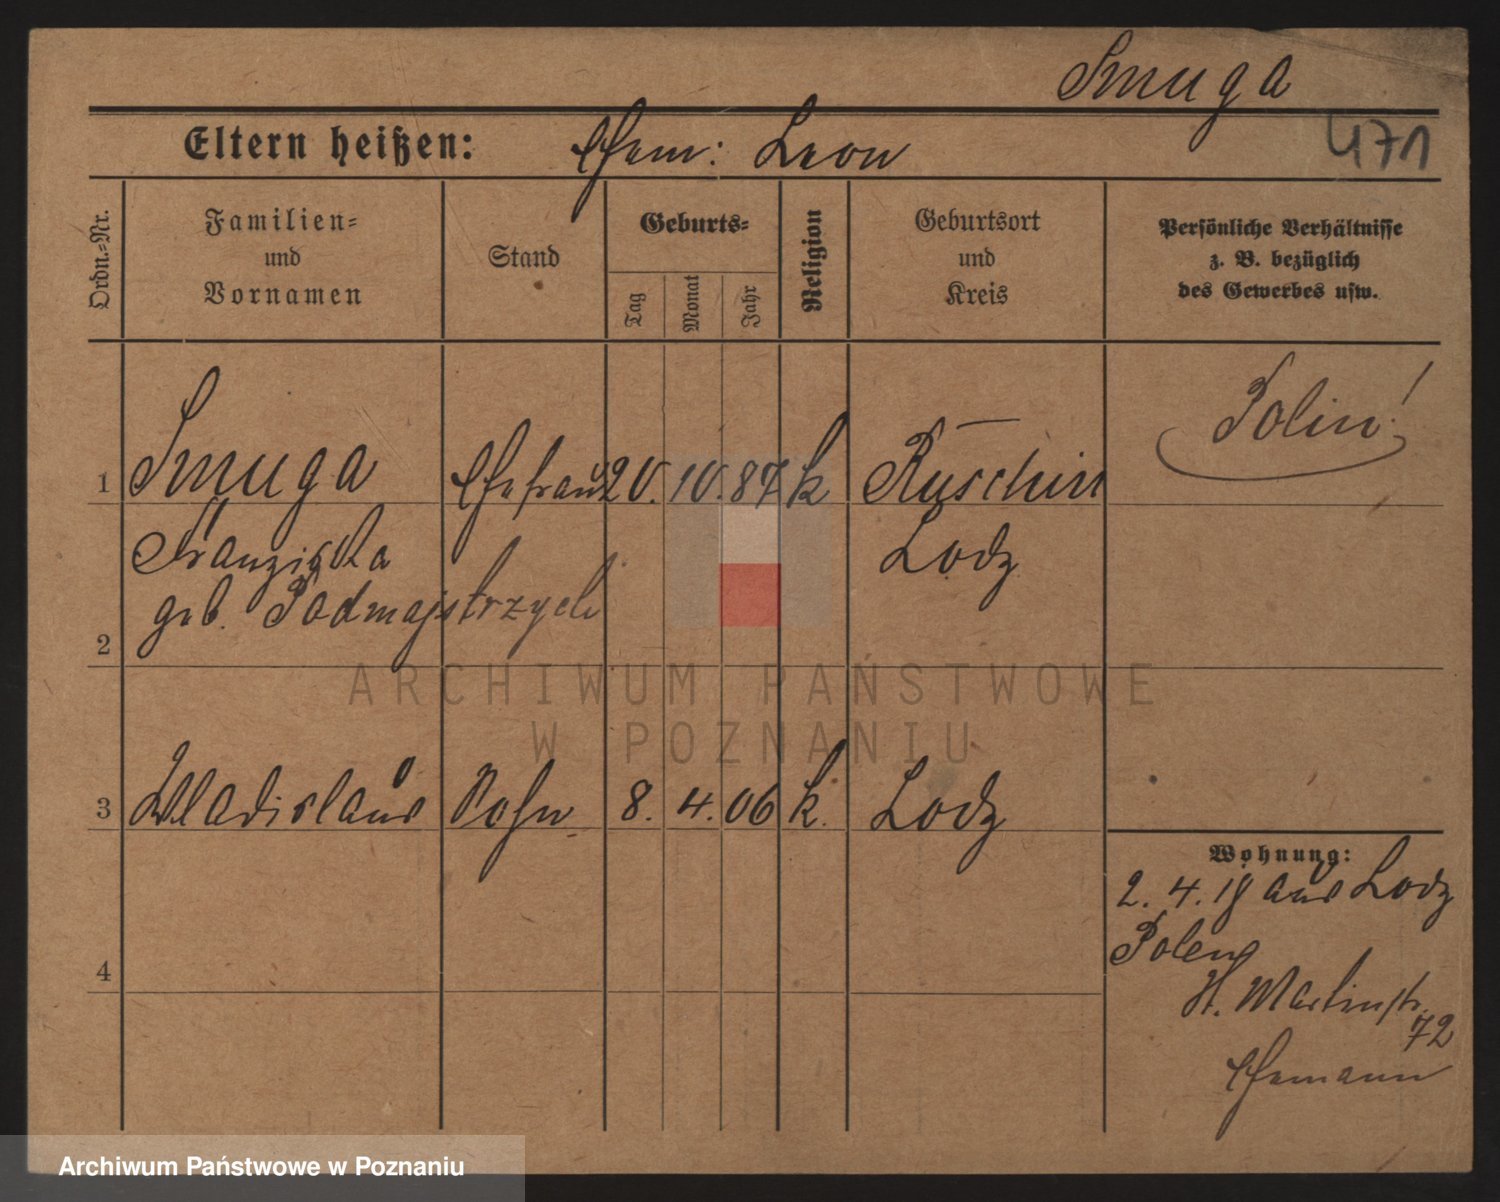 Smuga
471
Eltern heißen: Ehem: Leon
Ordn.-Nr.
Familien-
und
Vornamen
Stand
Geburts-
Tag
Monat
Jahr
Religion
Geburtsort
und
Kreis
Persönliche Verhältnisse
z. B. bezüglich
des Gewerbes usw.
Polin!
1 Smuga Ehefrau 20. 10. 87 k Ruschin
Franziska Lodz
geb. Podmajstrzych
2
ARCHIWUM PAŃSTWOWE
W POZNANIU
3 Wladislaus Sohn 8. 4. 06 k. Lodz
Wohnung:
2. 4. 18 aus Lodz
Polen
4
H. Martinstr.
72
Ehemann
Archiwum Państwowe w Poznaniu